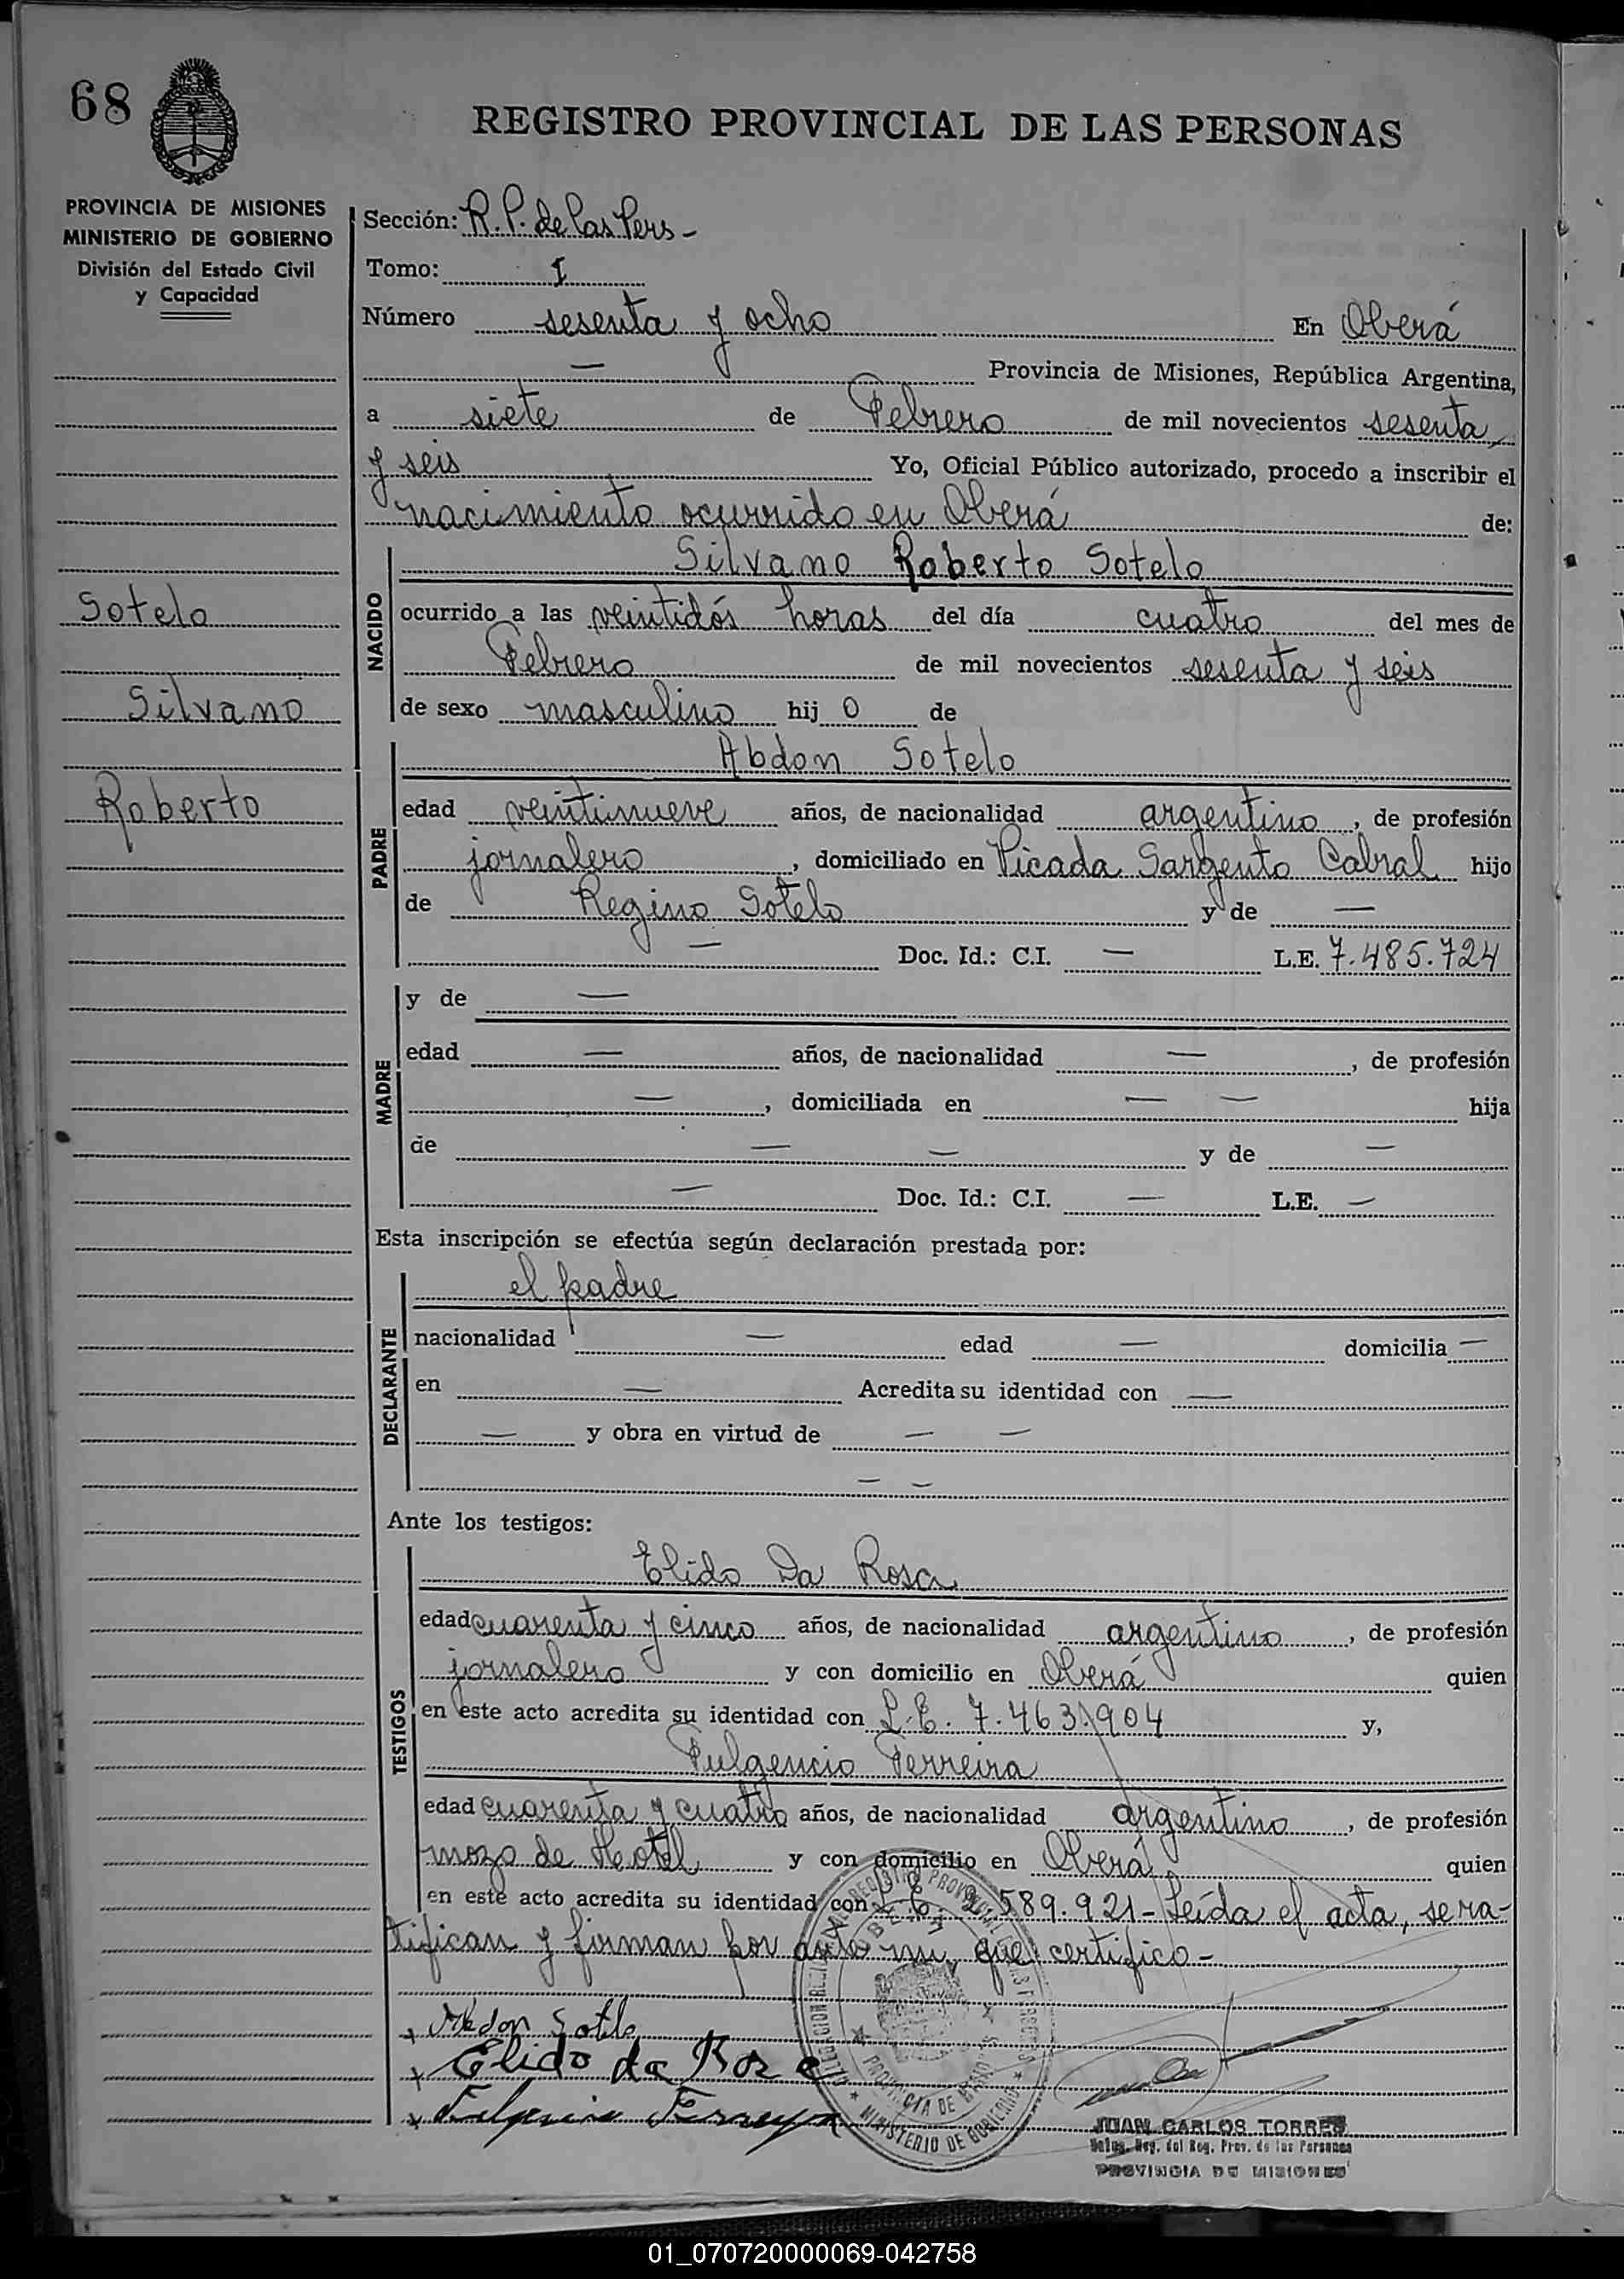 68
REGISTRO PROVINCIAL DE LAS PERSONAS
PROVINCIA DE MISIONES
MINISTERIO DE GOBIERNO
División del Estado Civil
y Capacidad
Sotelo
Silvano
Roberto
Sección: R. P. de las Pers -
Tomo: I
Número sesenta y ocho En Oberá
— Provincia de Misiones, República Argentina,
a siete de Febrero de mil novecientos sesenta
y seis Yo, Oficial Público autorizado, procedo a inscribir el
nacimiento ocurrido en Oberá de:
NACIDO
Silvano Roberto Sotelo
ocurrido a las veintidós horas del día cuatro del mes de
Febrero de mil novecientos sesenta y seis
de sexo masculino hij o de
PADRE
Abdon Sotelo
edad veintinueve años, de nacionalidad argentino, de profesión
jornalero, domiciliado en Picada Sargento Cabral hijo
de Regino Sotelo y de —
— Doc. Id.: C.I. — L.E. 7.485.724
MADRE
y de —
edad — años, de nacionalidad —, de profesión
—, domiciliada en — — hija
de — — y de —
— Doc. Id.: C.I. — L.E. —
Esta inscripción se efectúa según declaración prestada por:
DECLARANTE
el padre
nacionalidad — edad — domicilia —
en — Acredita su identidad con —
— y obra en virtud de — —
— —
Ante los testigos:
TESTIGOS
Elido Da Rosa
edad cuarenta y cinco años, de nacionalidad argentino, de profesión
jornalero y con domicilio en Oberá quien
en este acto acredita su identidad con L.E. 7.463.904 y,
Fulgencio Ferreira
edad cuarenta y cuatro años, de nacionalidad argentino, de profesión
mozo de Hotel y con domicilio en Oberá quien
en este acto acredita su identidad con 589.921 - Leída el acta, se ra-
tifican y firman por ante mi, que certifico -
+ Abdon Sotelo
+ Elido da Roza
+ Fulgencio Ferreyra
PROVINCIA DE MISIONES
MINISTERIO DE GOBIERNO
JUAN CARLOS TORRES
Reg. del Reg. Prov. de las Personas
PROVINCIA DE MISIONES
01_070720000069-042758